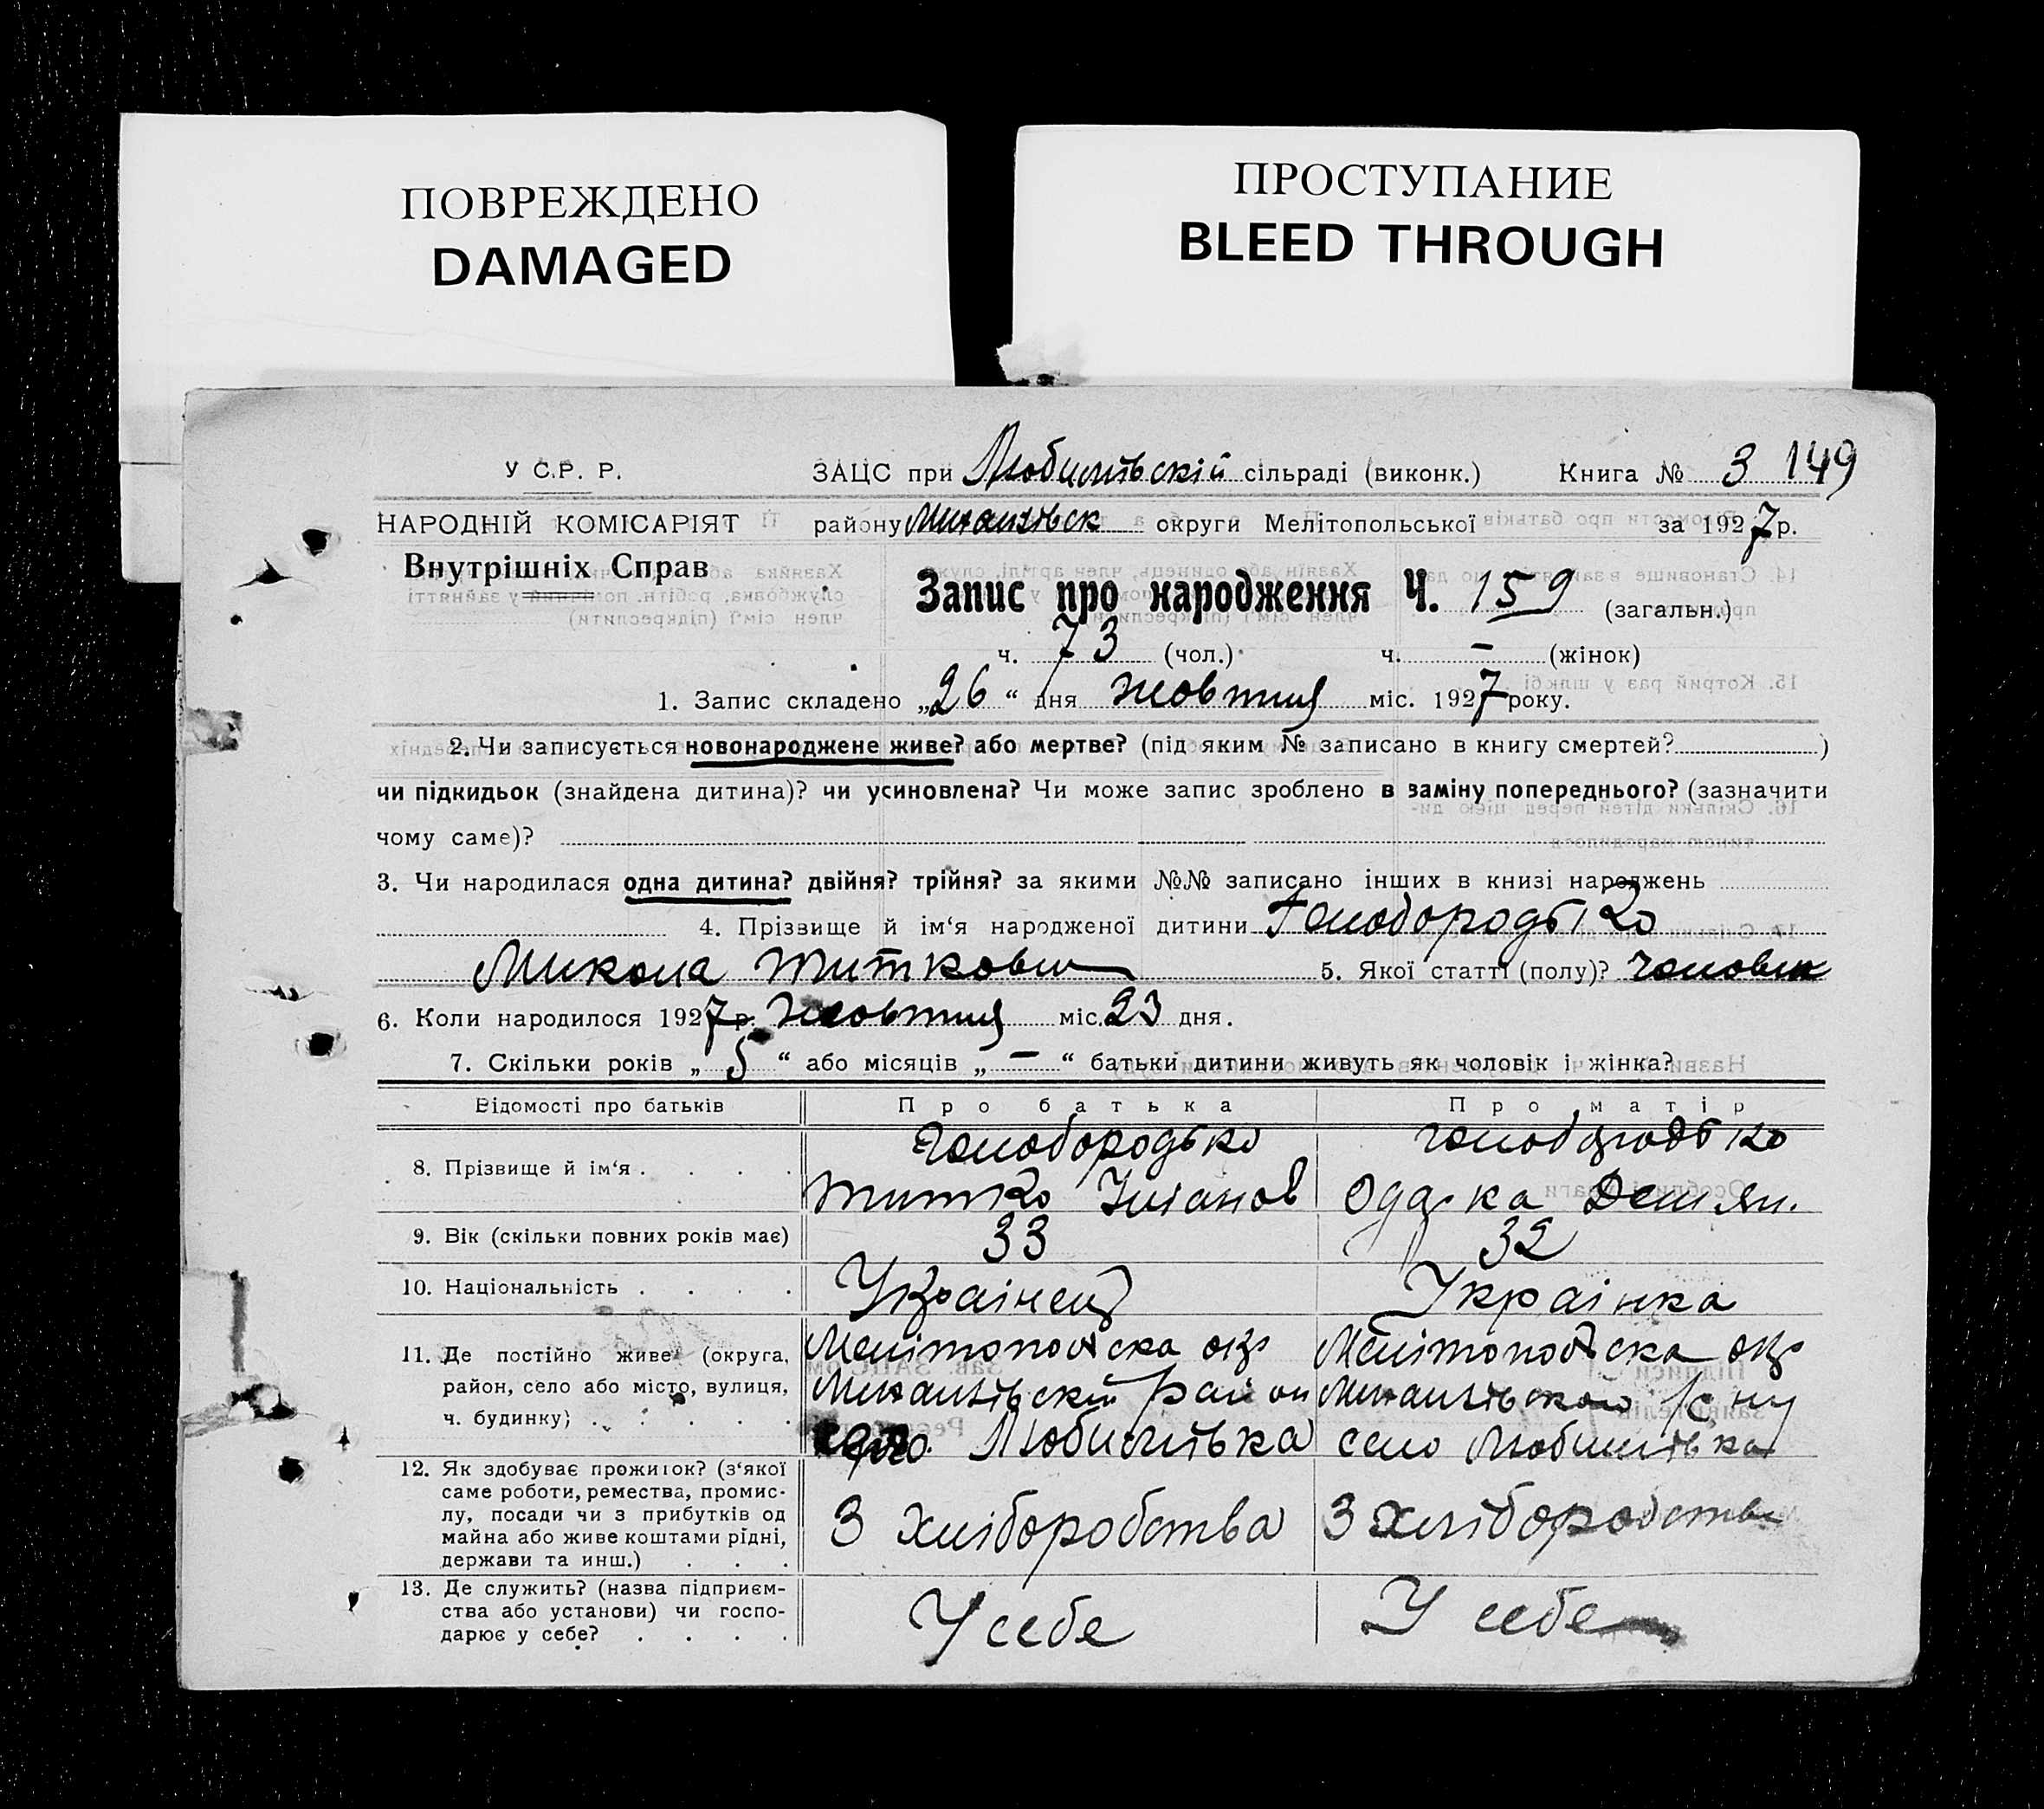 ПОВРЕЖДЕНО
DAMAGED
ПРОСТУПАНИЕ
BLEED THROUGH
У С.Р. Р. ЗАЦС при Любимівській сільраді (виконк.) Книга № 3 149
НАРОДНІЙ КОМІСАРІЯТ району Михайлівськ округи Мелітопольської за 1927 р.
Внутрішніх Справ
Запис про народження Ч. 159 (загальн.)
ч. 73 (чол.) ч. – (жінок)
1. Запис складено „26“ дня жовтня міс. 1927 року.
2. Чи записується новонароджене живе? або мертве? (під яким № записано в книгу смертей? )
чи підкидьок (знайдена дитина)? чи усиновлена? Чи може запис зроблено в заміну попереднього? (зазначити
чому саме)?
3. Чи народилася одна дитина? двійня? трійня? за якими №№ записано інших в книзі народжень
4. Прізвище й ім‘я народженої дитини Голобородько
Микола Титкови 5. Якої статті (полу)? чоловік
6. Коли народилося 1927 р. жовтня міс. 23 дня.
7. Скільки років „5“ або місяців „–“ батьки дитини живуть як чоловік і жінка?
Відомості про батьків Про батька Про матір
8. Прізвище й ім‘я . . . . Голобородько Голобородько
Титко Іванов Одарка Дем'ян.
9. Вік (скільки повних років має) 33 32
10. Національність . . . . Українец Українка
11. Де постійно живе (округа, Мелітопольска окр Мелітопольска окр
район, село або місто, вулиця, Михайлівський район Михайлівського
ч. будинку) . . . . . село Любимівка село Любимівка
12. Як здобуває прожиток? (з‘якої
саме роботи, ремества, промис-
лу, посади чи з прибутків од З хліборобства З хліборобства
майна або живе коштами рідні,
держави та инш.) . . .
13. Де служить? (назва підприєм-
ства або установи) чи госпо- У себе У себе
дарює у себе? . . . .